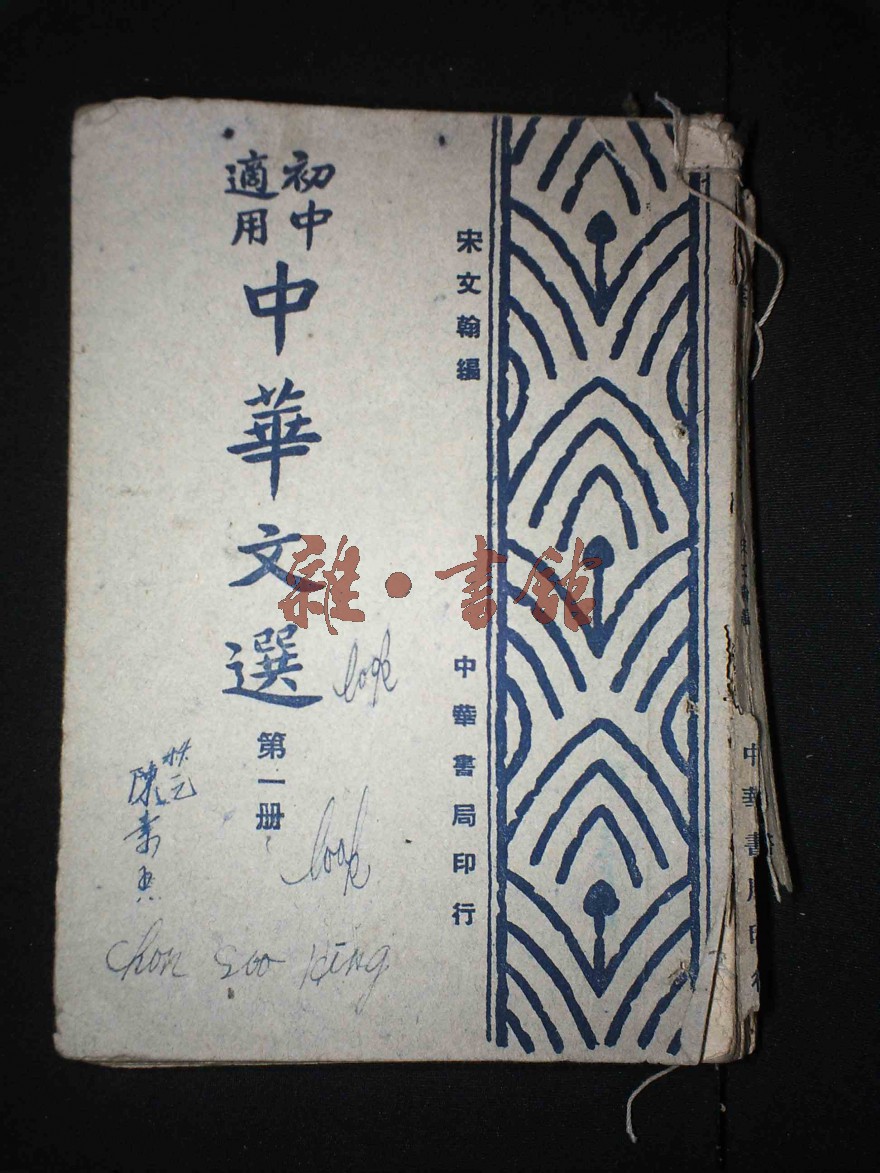 初中
適用
中華文選
第一册
宋文翰編
中華書局印行
雜·書館
look
look
陳素
chon soo king
宋文翰編
中華書局印行